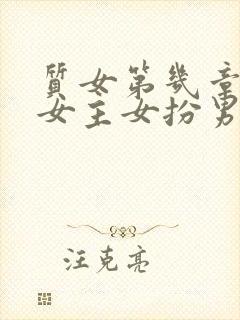 質女第幾章
女主女扮男
汪克亮